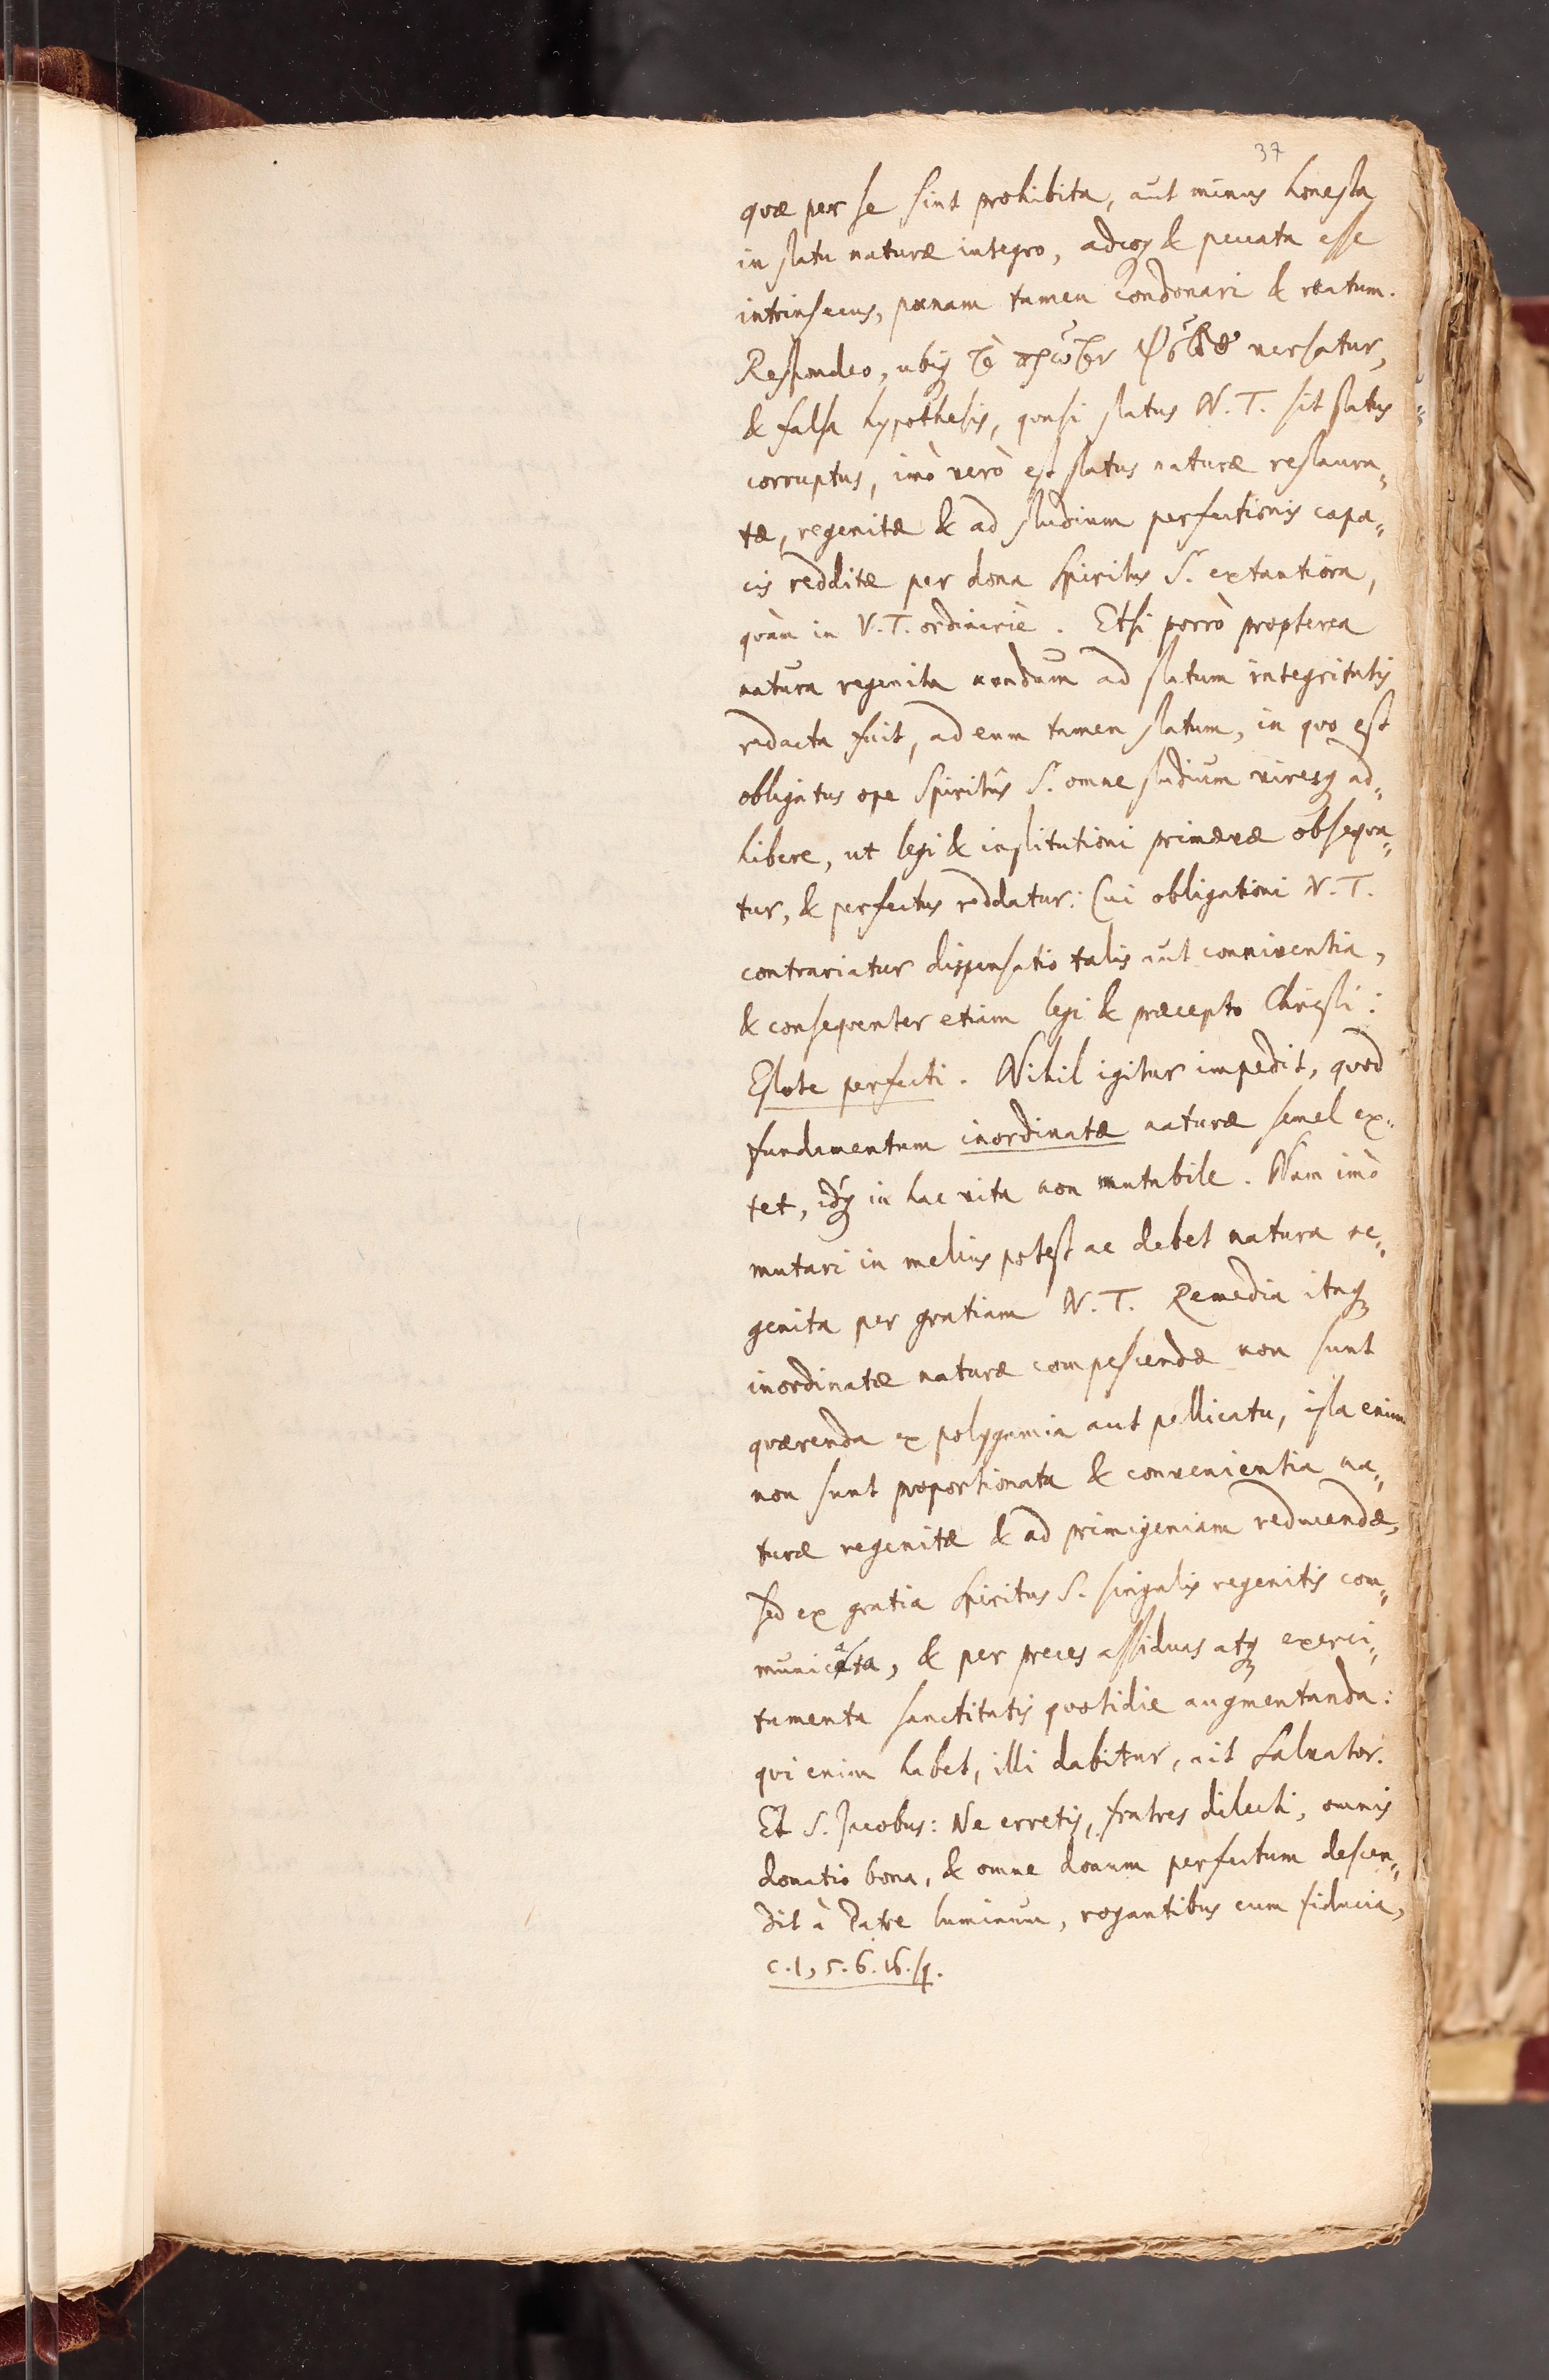 37
quæ per se sint prohibita, aut minus honesta
in statu naturæ integro, adeoq̃ & peccata esse
intrinsecus, pœnam tamen condonari & reatum.
Respondeo, ubiq̃ τὸ πρῶτον ψεῦδος versatur,
& falsa hypothesis, quasi status N. T. sit status
corruptus, imò verò est status naturæ restaura„
tæ, regenitæ & ad studium perfectionis capa„
cis redditæ per dona Spiritus S. extantiora,
quàm in V. T. ordinariè. Etsi porrò propterea
natura regenita nondum ad statum integritatis
redacta fuit, ad eum tamen statum, in quo est
obligatus ope Spiritûs S. omne studium viresq̃ ad„
hibere, ut legi & institutioni primævæ obsequa„
tur, & perfectus reddatur: Cui obligationi N. T.
contrariatur dispensatio talis aut conniventia,
& consequenter etiam legi & præcepto Christi:
Estote perfecti. Nihil igitur impedit, quod
fundamentum inordinatæ naturæ semel ex„
tet, idq̃ in hac vita non mutabile. Nam imò
mutari in melius potest ac debet natura re„
genita per gratiam N. T. Remedia itaq̃
inordinatæ naturæ compescendæ non sunt
quærenda ex polygamia aut pellicatu, ista enim
non sunt proportionata & convenientia na„
turæ regenitæ & ad primigeniam reducendæ,
sed ex gratia Spiritus S. singulis regenitis com„
municata, & per preces assiduas atq̃ exerci„
tamenta sanctitatis quotidie augmentanda:
qui enim habet, illi dabitur, ait Salvator.
Et S. Jacobus: Ne erretis, fratres dilecti, omnis
donatio bona, & omne donum perfectum descen„
dit à Patre luminum, rogantibus cum fiducia,
c. 1, 5. 6. 16. sq.